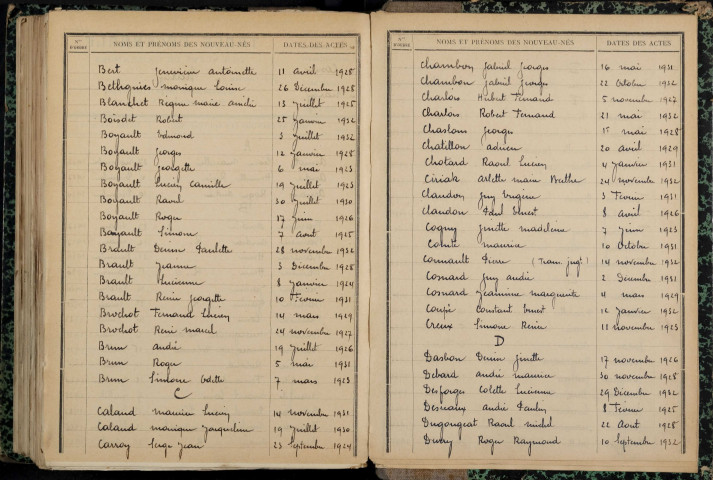 Nos D'ORDRE NOMS ET PRÉNOMS DES NOUVEAU-NÉS DATES DES ACTES
Bert Geneviève Antoinette 11 avril 1928
Bethgnies Monique Louise 26 Décembre 1928
Blanchet Regina Marie 15 Juillet 1925
Boisdet Robert 25 Janvier 1932
Boyault Edmond 3 Juillet 1932
Boyault Georges 12 Janvier 1928
Boyault Georgette 6 mai 1923
Boyault Lucien Camille 19 Juillet 1923
Boyault Raoul 30 Juillet 1930
Boyault Roger 17 Juin 1926
Boyault Simone 7 Aout 1925
Brault Denise Paulette 28 novembre 1932
Brault Jeanne 3 Décembre 1928
Brault Lucienne 8 Janvier 1924
Brault Renée Georgette 10 Février 1931
Brochot Fernand Lucien 14 mars 1929
Brochot René marcel 24 novembre 1927
Brun andré 19 Juillet 1926
Brun Roger 5 mai 1931
Brun Simone Odette 7 mars 1923
C
Caland maurice Lucien 14 novembre 1931
Caland monique Jacqueline 19 Juillet 1930
Carroy Serge Jean 23 Septembre 1924
Nos D'ORDRE NOMS ET PRÉNOMS DES NOUVEAU-NÉS DATES DES ACTES
Chambon Gabriel Georges 16 mai 1931
Chambon Gabriel Georges 22 Octobre 1932
Charlois Hubert Fernand 5 novembre 1927
Charlois Robert Fernand 21 mai 1932
Chaslons Georges 1er mai 1928
Chatillon adrien 20 avril 1929
Chotard Raoul Lucien 4 Janvier 1931
Ciriak Arlette marie Berthe 24 novembre 1932
Claudon Guy Eugène 3 Février 1931
Claudon Paul Ernest 8 avril 1926
Cogny Ginette madeleine 7 Juin 1923
Comte maurice 10 Octobre 1931
Cornault Pierre (Trans. jugt) 14 novembre 1932
Cosnard Guy andré 2 Décembre 1931
Cosnard Jeannine marguerite 4 mars 1929
Coupé Constant Ernest 12 Janvier 1932
Creux Simone Renée 11 novembre 1923
D
Dasbon Denise Ginette 17 novembre 1926
Debard andré maurice 30 novembre 1928
Desforges Colette Lucienne 29 Décembre 1932
andré 8 Février 1925
Dugougeat Raoul michel 22 Aout 1928
Roger Raymond 10 Septembre 1932